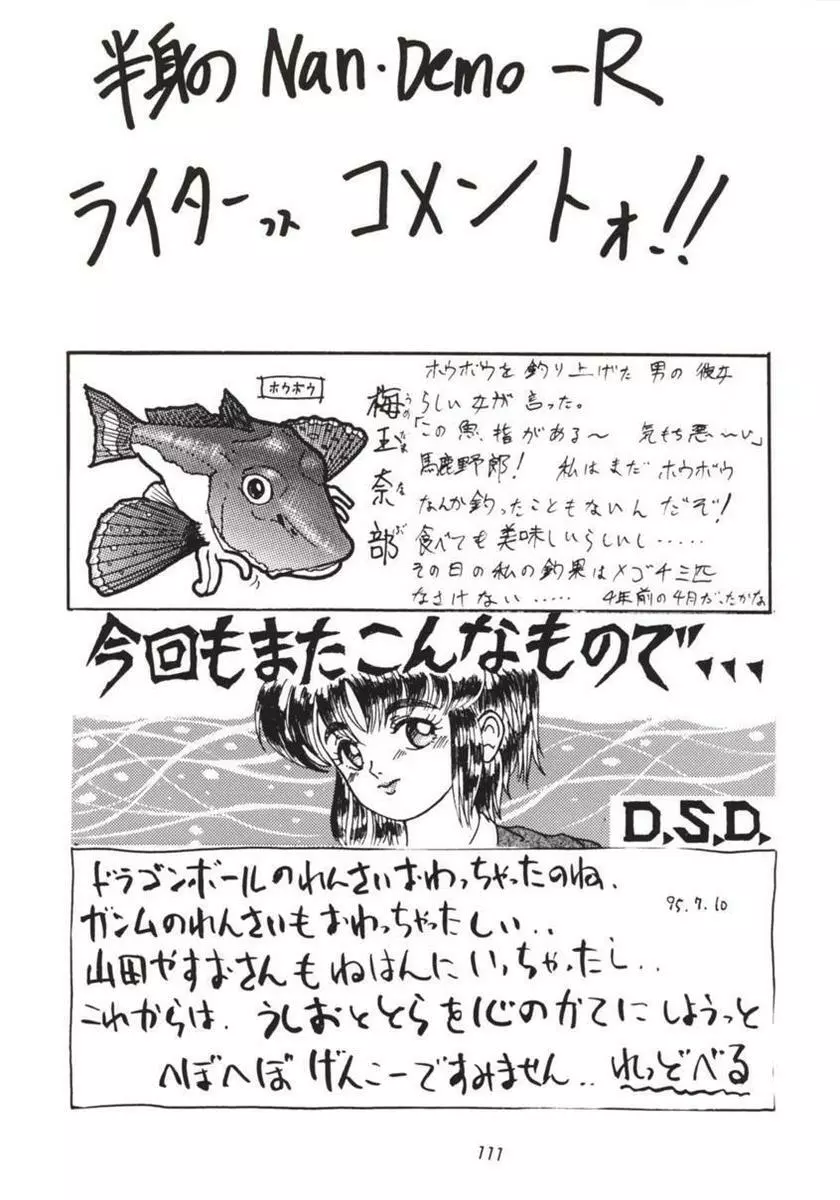 半身の Nan・Demo－R
ライターズ コメントォ!!
ホウボウ
梅玉奈部
うめ たま な べ
ホウボウを釣り上げた 男の 彼女
らしい女が言った。
「この魚、指がある〜 気もち悪〜い」
馬鹿野郎! 私はまだ ホウボウ
なんか釣ったこともないんだぞ!
食べても美味しいらしいし・・・・・
その日の私の釣果はメゴチ三匹
なさけない・・・・・ 4年前の4月だったかな
今回もまたこんなもので、、、
D.S.D.
ドラゴンボールのれんさいおわっちゃったのね、
95.7.10
ガンムのれんさいもおわっちゃったしぃ..
山田やすおさんもねはんにいっちゃったし..
これからは、うしおととらを心のかてにしようっと
へぼへぼげんこーですみません.. れっどべる
111